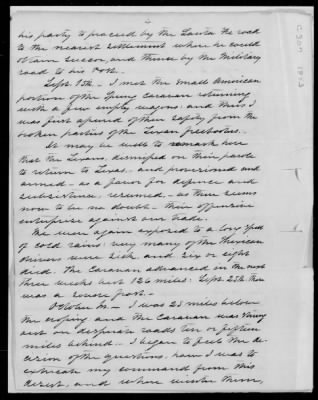 his party to proceed by the Santa Fe road
to the nearest settlement where he could
obtain succor, and thence by the Military
road to his Post.
Sept. 1st. I met the small American
portion of the Spring Caravan returning
with a few empty wagons: and thus I
was first apprised of their safety from the
broken parties of the Texan freebooters.
It may be well to remark here
that the Texans, dismissed on their parole
to return to Texas, and provisioned and
armed, as a favor for defence and
subsistence, renewed, as there seems
now to be no doubt, their offensive
enterprise against our trade.
We were again exposed to a long spell
of cold rains: very many of the Mexican
drivers were sick, and six or eight
died. The Caravan advanced in the next
three weeks but 126 miles: Sept. 23th there
was a severe frost.
October 1st I was 23 miles below
the crossing and the Caravan was strung
out on desperate roads ten or fifteen
miles behind. I began to feel the de-
cision of the questions, how I was to
extricate my command from this
desert, and where winter them,